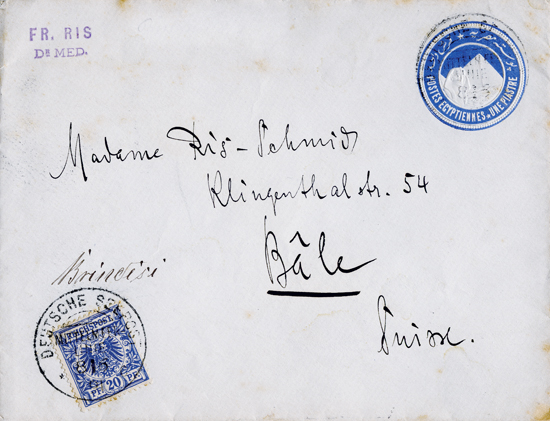 FR. RIS
Dr MED.
POSTES EGYPTIENNES. UNE PIASTRE
Madame Ris-Schmid
Klingenthalstr. 54
Bâle
Suisse.
Brindisi
DEUTSCHE SEEPOST
REICHSPOST
PF 20 PF